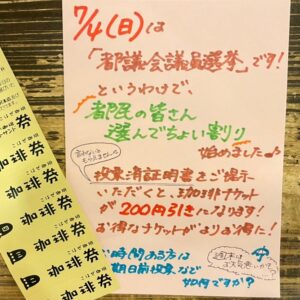 7/4(日)は
「都議会議員選挙」です!
というわけで、
都民の皆さん
選んでちょい割り
始めました♪
投票済証明書をご提示
いただくと、珈琲チケット
が200円引きになります!
お得なチケットがよりお得に!
お時間ある方は
期日前投票など
如何ですか?
珈琲券
珈琲券
珈琲券
珈琲券
珈琲券
珈琲券